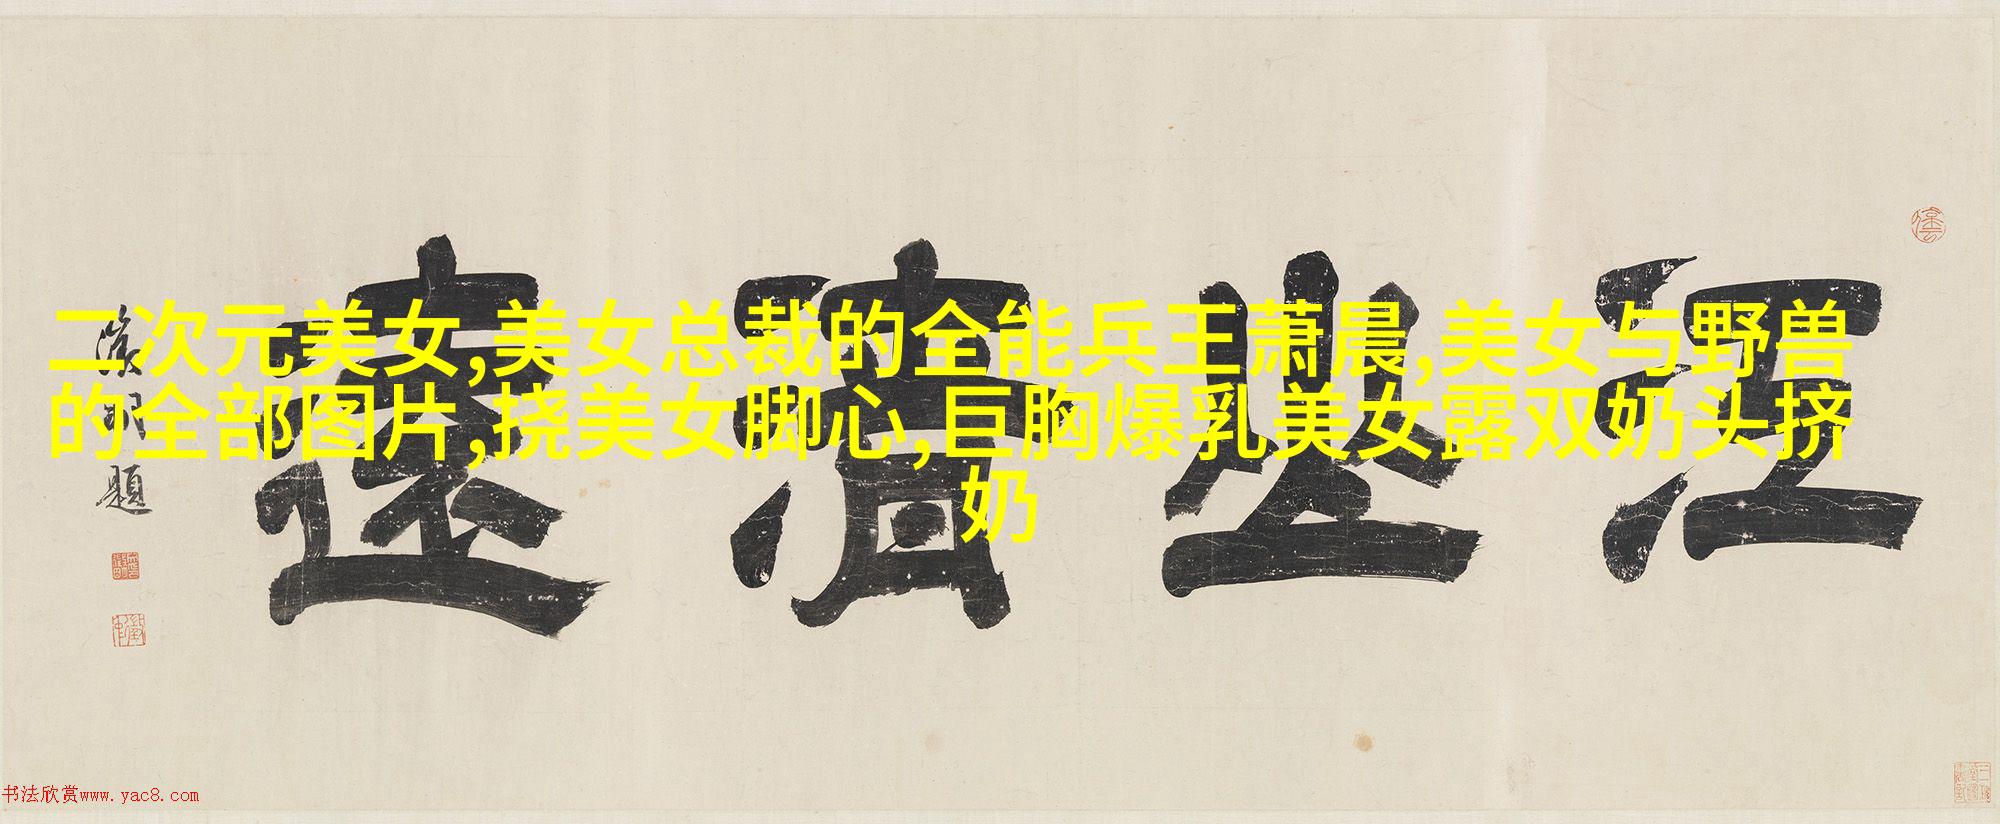 二次元美女,美女总裁的全能兵王萧晨,美女与野兽
的全部图片,挠美女脚心,巨胸爆乳美女露双奶头挤
奶
江山清遠
題
书法欣赏www.yac8.com